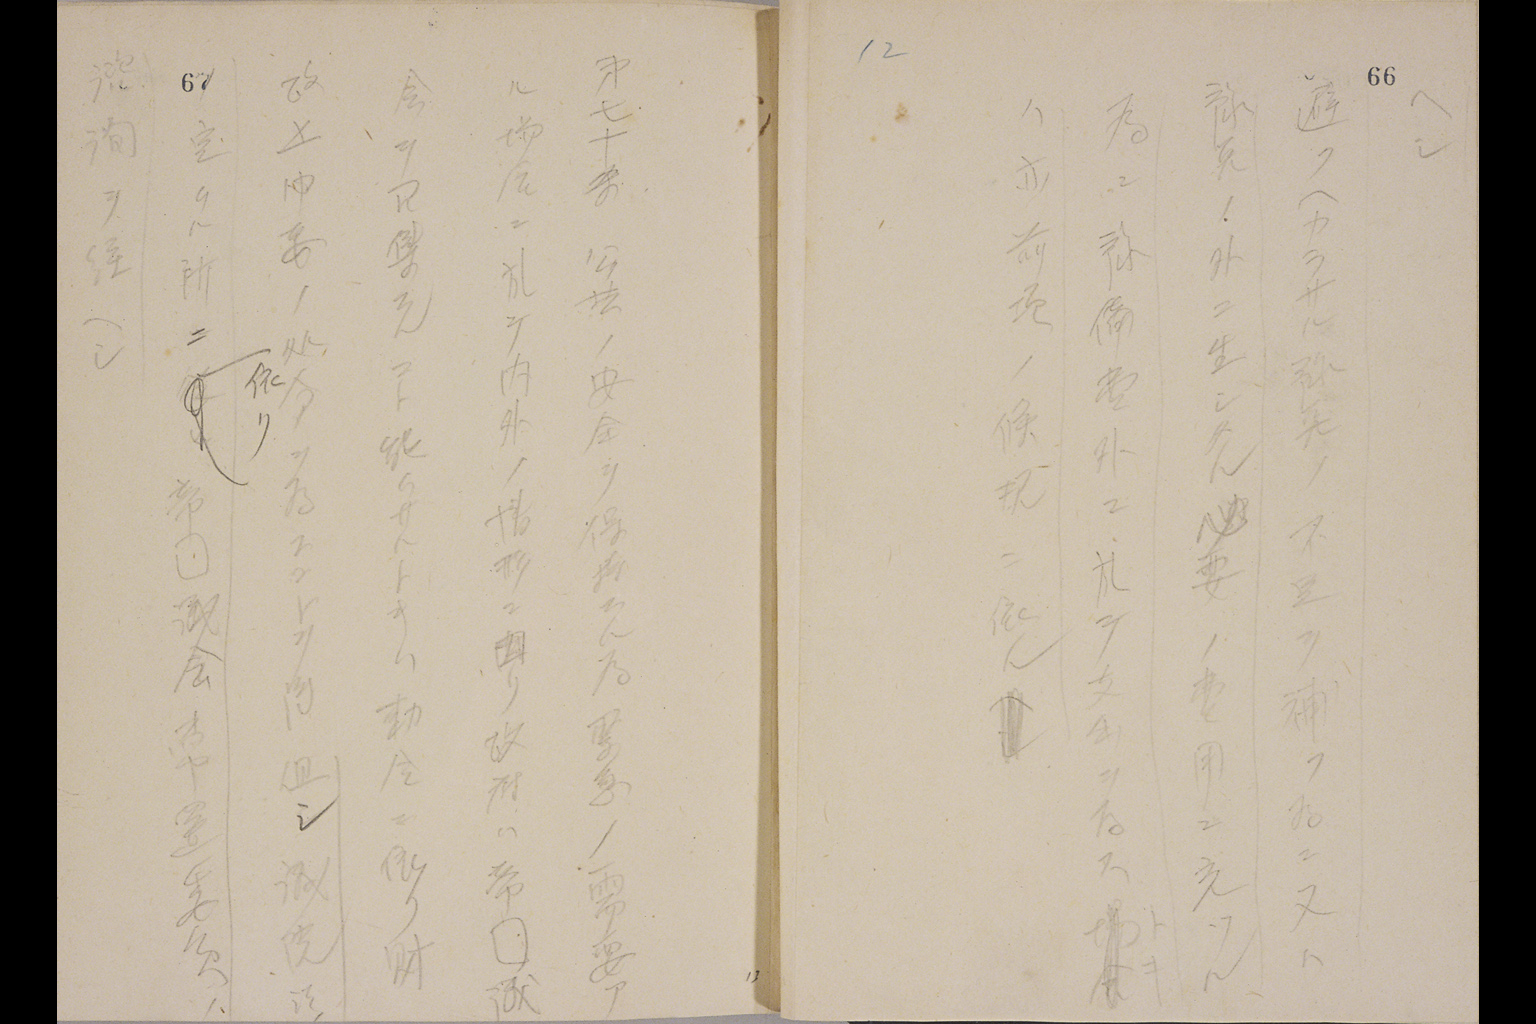 66
12
ヘシ
避クヘカラサル予算ノ不足ヲ補フ為ニ又ハ
予算ノ外ニ生シタル必要ノ費用ニ充ツル
為ニ予備費外ニ於テ支出ヲ為ストキ
ハ亦前項ノ條規ニ依ル
67
第七十条 公共ノ安全ヲ保持スル為緊急ノ需要ア
ル場合ニ於テ内外ノ情形ニ因リ政府ハ帝国議
会ヲ召集スルコト能ハサルトキハ勅令ニ依リ財
政上必要ノ処分ヲ為スコトヲ得但シ議院法
ノ定ムル所ニ依リ帝国議会常置委員ハ
諮詢ヲ経ヘシ
13